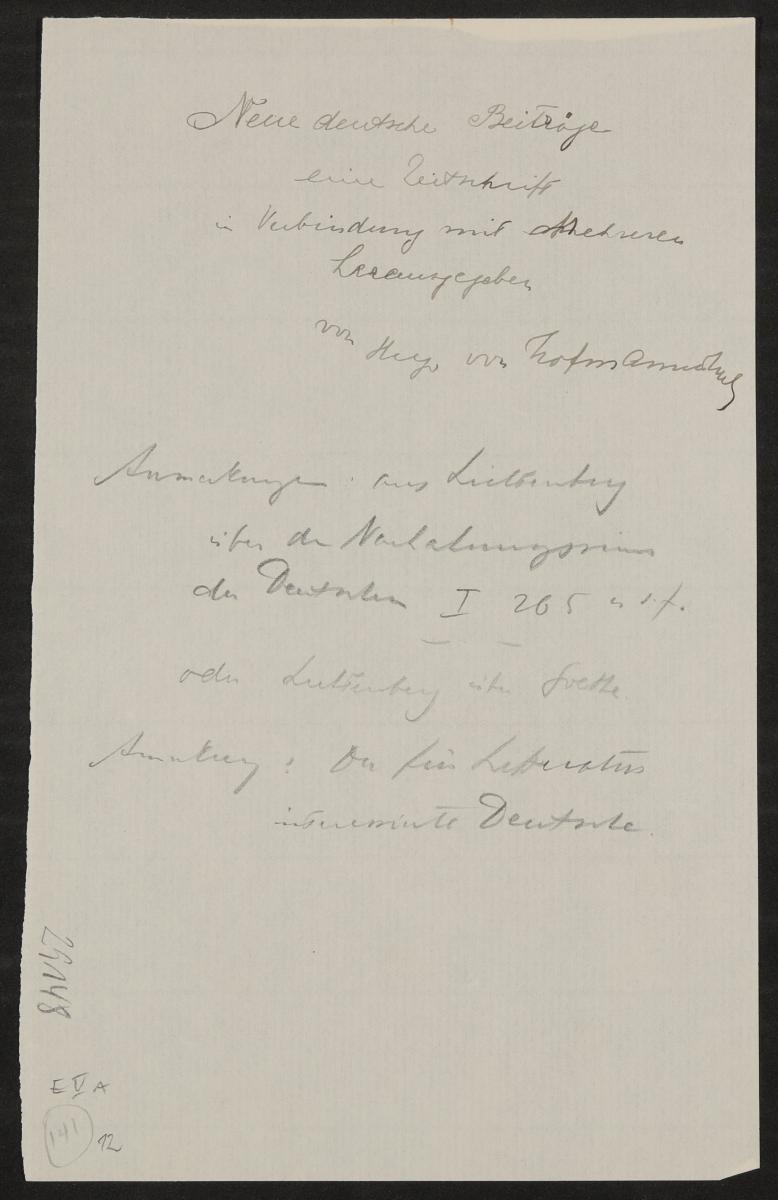 Neue deutsche Beiträge
eine Zeitschrift
in Verbindung mit Mehreren
herausgegeben
von Hugo von Hofmannsthal
Anmerkungen: aus Lichtenberg
über den Nachahmungssinn
der Deutschen I 265 u s. f.
oder Lichtenberg über Goethe.
Anmerkung: Der für Litteratur
interessierte Deutsche.
25148
E V A
141 12